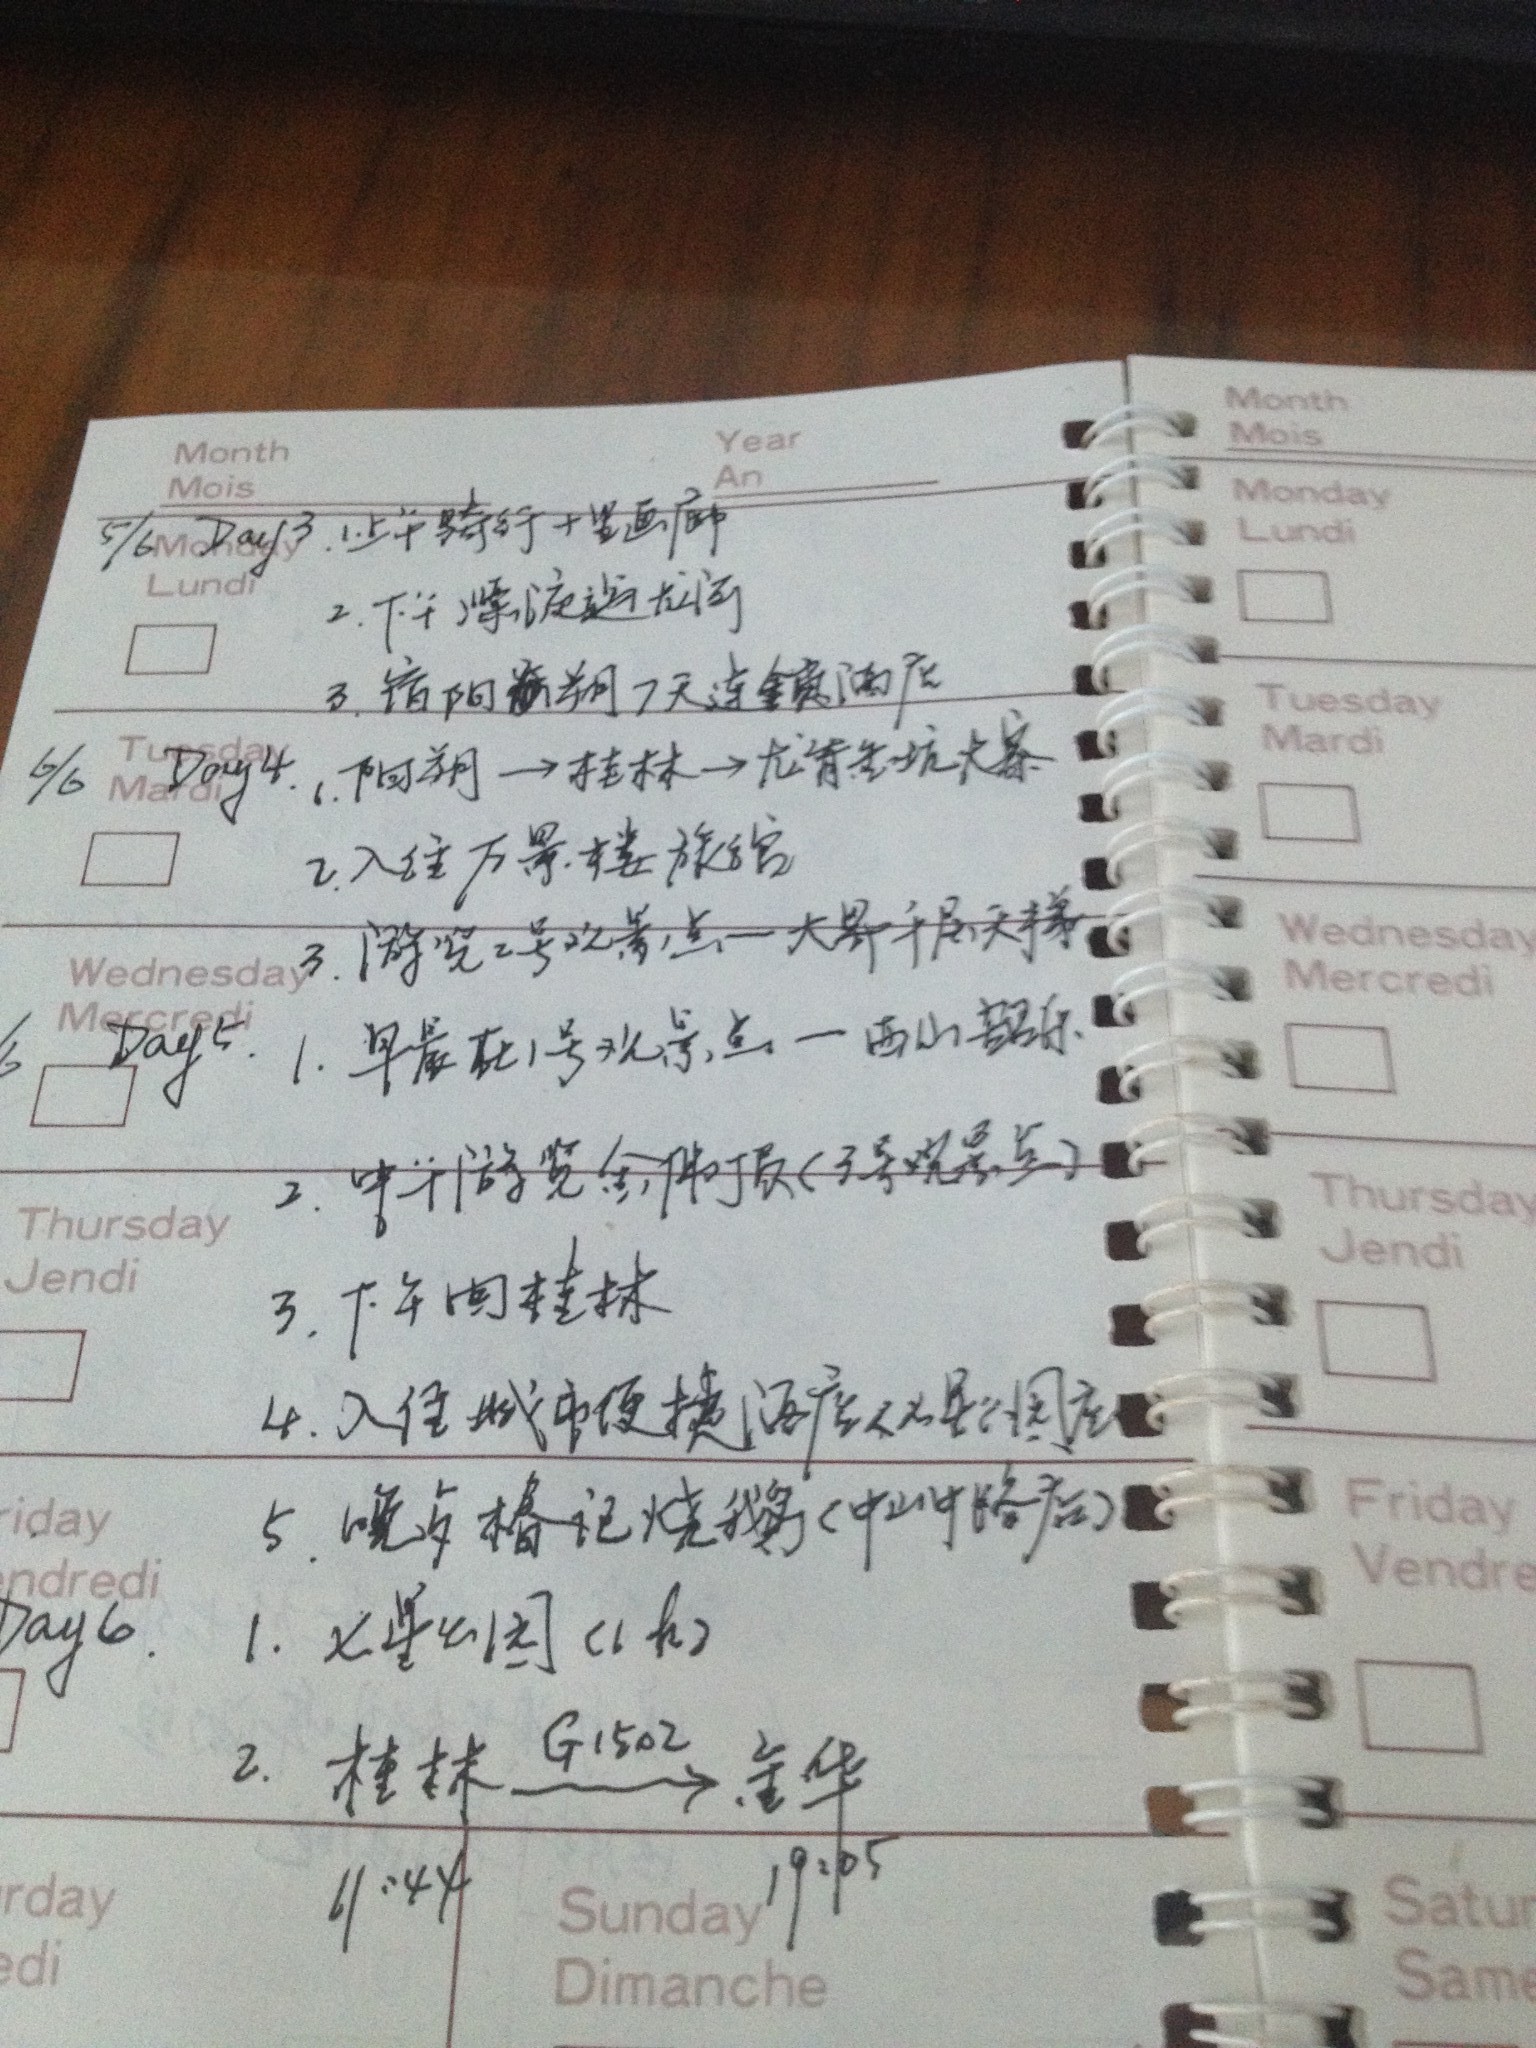 Month
Mois
Year
An
5/6 Day3. 1.上午骑行十里画廊
Monday
Lundi
2.下午漂流遇龙河
3.宿阳朔7天连锁酒店
Tuesday
Mardi
6/6 Day4. 1.阳朔→桂林→龙脊金坑大寨
2.入住万景楼旅馆
3.游览2号观景点—大界千层天梯
Wednesday
Mercredi
Day5. 1.早晨在1号观景点—西山韶乐
2.中午游览金佛顶(3号观景点)
Thursday
Jendi
3.下午回桂林
4.入住城市便捷酒店<七星公园店
5.晚与椿记烧鹅(中山中路店)
riday
endredi
Day6. 1.七星公园(1h)
2.桂林 G1502→金华
11:44 19:05
urday
edi
Sunday
Dimanche
Month
Mois
Monday
Lundi
Tuesday
Mardi
Wednesday
Mercredi
Thursday
Jendi
Friday
Vendre
Satur
Same